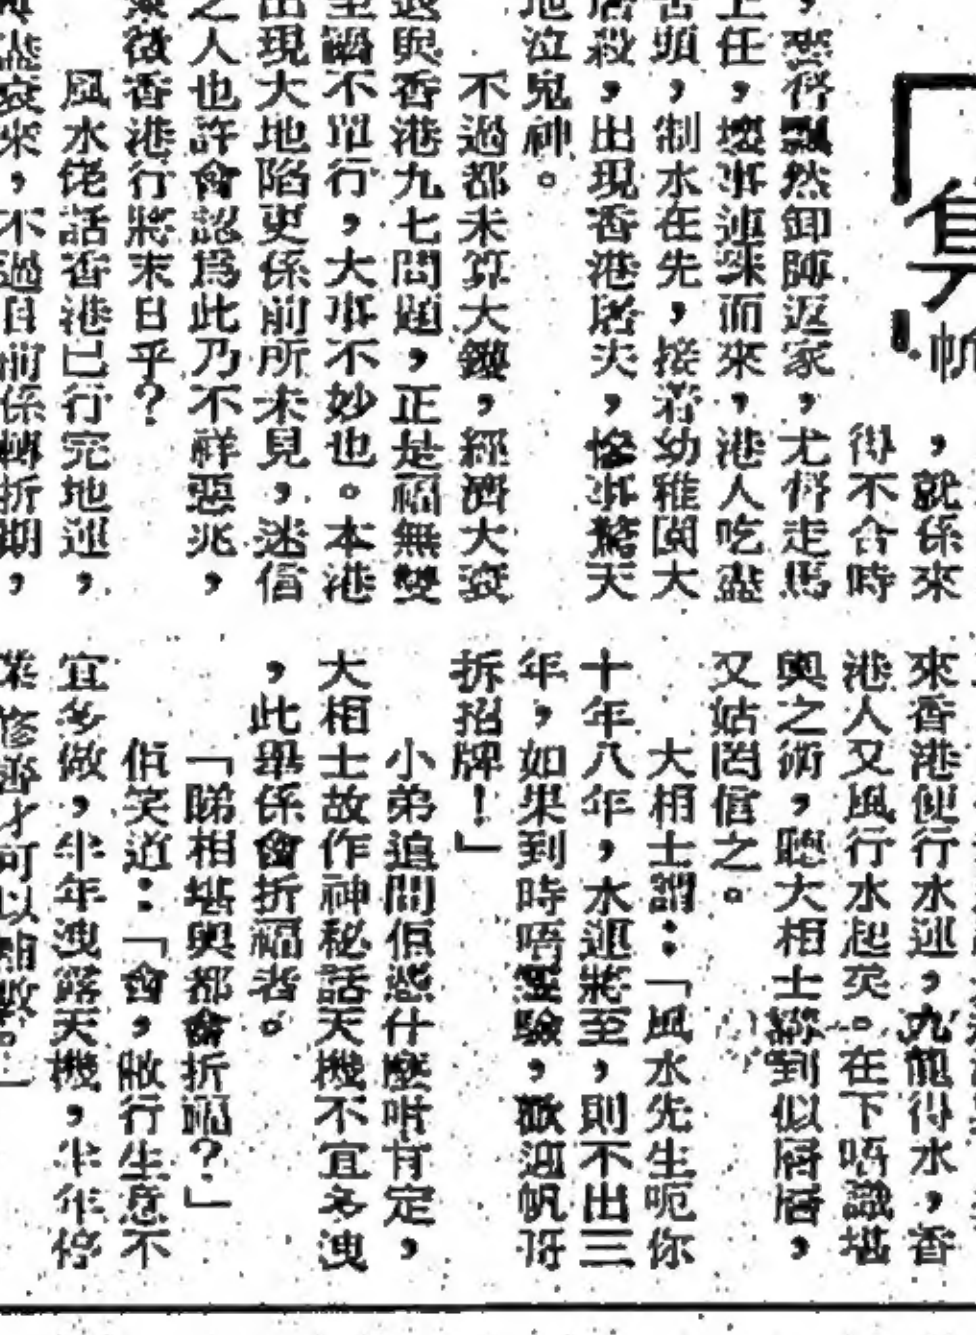 ，就係來
得不合時
，燕哥飄然卸陣返家，尤督走馬
上任，壞事連珠而來，港人吃盡
苦頭，制水在先，接着幼稚園大
屠殺，出現香港屠夫，慘事驚天
地泣鬼神。
不過都未算大鑊，經濟大衰
退與香港九七問題，正是福無雙
至禍不單行，大事不妙也。本港
出現大地陷更係前所未見，迷信
之人也許會認爲此乃不祥惡兆，
象徵香港行將末日乎？
風水佬話香港已行完地運，
盛衰來，不過目前係轉折期，
來香港便行水運，九龍得水，香
港人又風行水起矣。在下唔識堪
輿之術，聽大相士講到似層層，
又姑罔信之。
大相士謂：「風水先生呃你
十年八年，水運將至，則不出三
年，如果到時唔靈驗，歡迎帆哥
拆招牌！」
小弟追問佢憑什麼咁肯定，
大相士故作神秘話天機不宜多洩
，此舉係會折福者。
「睇相堪輿都會折福？」
佢笑道：「會，敝行生意不
宜多做，半年洩露天機，半年停
業修齋才可以補救。」